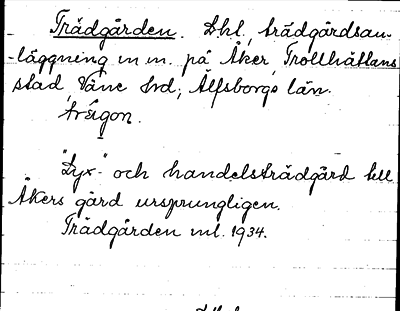 Trädgården. Lhl, trädgårdsan-
-läggning m m. på Åker, Trollhättans
stad Väne hd; Älfsborgs län.
trä̀gon.
"Lyx-" och handelsträdgård till
Åkers gård ursprungligen.
Trädgården ml. 1934.